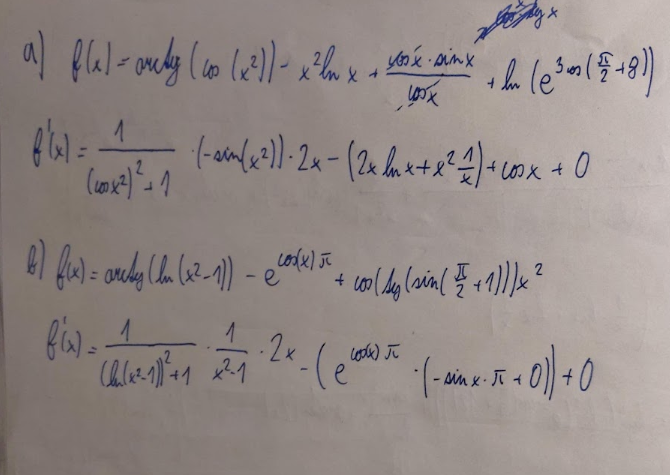 a) f(x) = arctg(cos(x²)) - x² ln x + (cos x · sin x)/(cos x) + ln(e^(3 cos(π/2 + 8)))
f'(x) = 1/((cos x²)² + 1) · (-sin(x²)) · 2x - (2x ln x + x² 1/x) + cos x + 0
b) f(x) = arctg(ln(x²-1)) - e^(cos(x) π) + cos(tg(sin(π/2 + 1))) x²
f'(x) = 1/((ln(x²-1))² + 1) · 1/(x²-1) · 2x - (e^(cos(x) π) · (-sin x · π + 0)) + 0